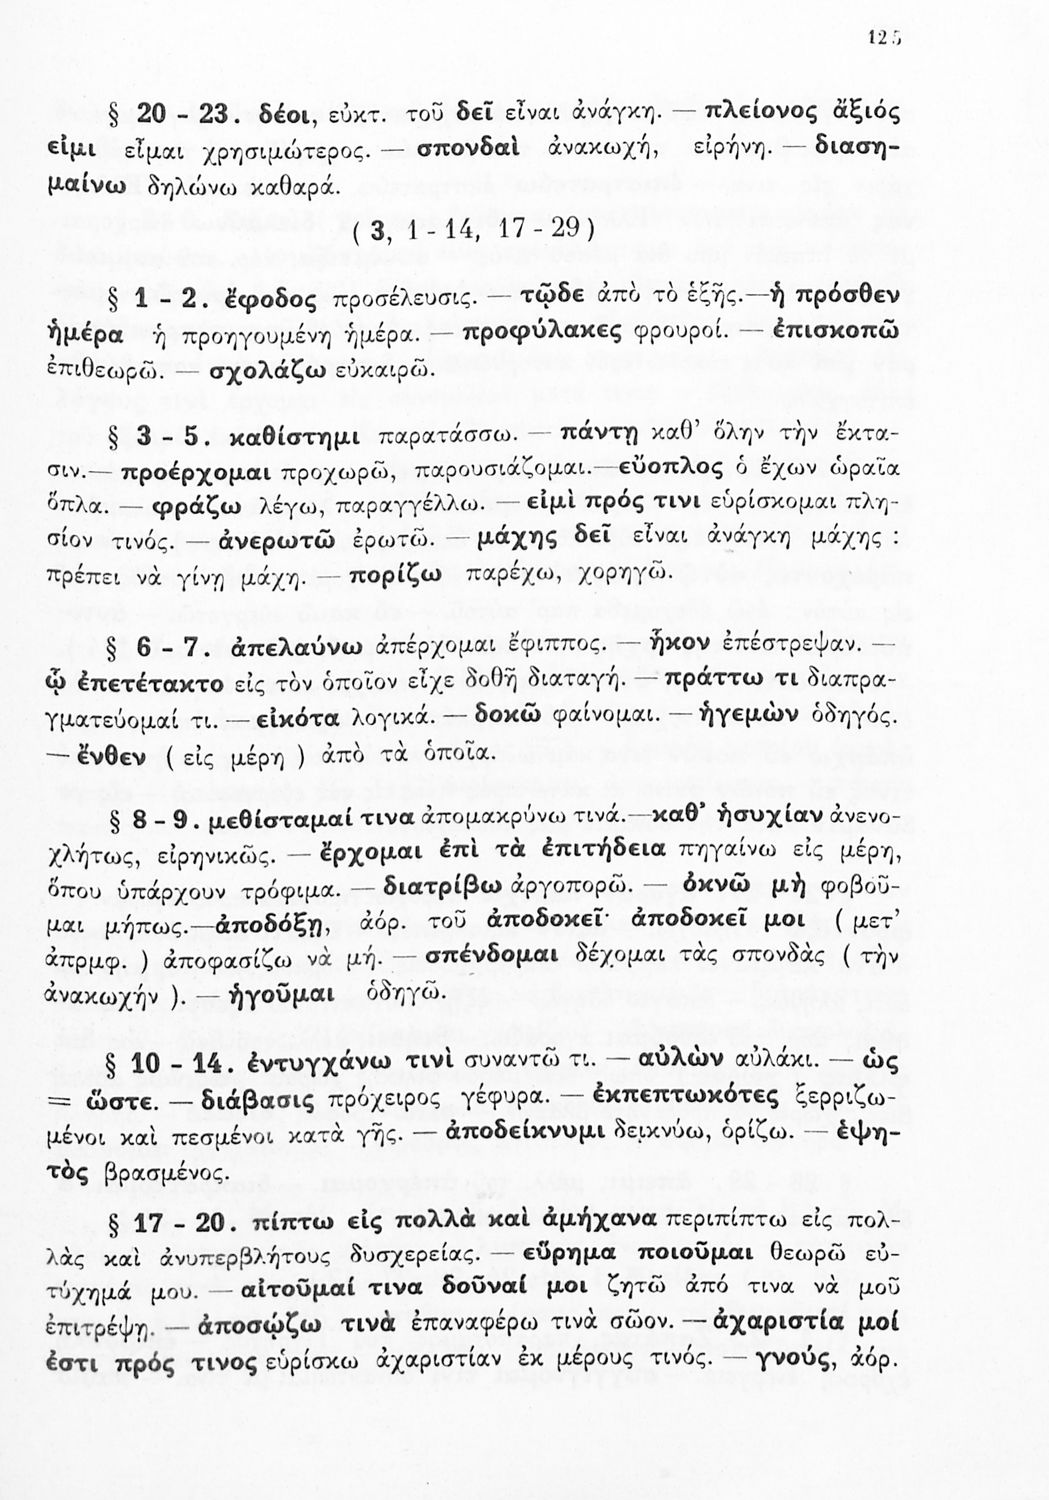 125
§ 20 - 23. δέοι, εὐκτ. τοῦ δεῖ εἶναι ἀνάγκη. — πλείονος ἄξιός
εἰμι εἶμαι χρησιμώτερος. — σπονδαὶ ἀνακωχή, εἰρήνη. — διαση-
μαίνω δηλώνω καθαρά.
( 3, 1 - 14, 17 - 29 )
§ 1 - 2. ἔφοδος προσέλευσις. — τῷδε ἀπὸ τὸ ἑξῆς.—ἡ πρόσθεν
ἡμέρα ἡ προηγουμένη ἡμέρα. — προφύλακες φρουροί. — ἐπισκοπῶ
ἐπιθεωρῶ. — σχολάζω εὐκαιρῶ.
§ 3 - 5. καθίστημι παρατάσσω. — πάντῃ καθ’ ὅλην τὴν ἔκτα-
σιν.— προέρχομαι προχωρῶ, παρουσιάζομαι.—εὔοπλος ὁ ἔχων ὡραῖα
ὅπλα. — φράζω λέγω, παραγγέλλω. — εἰμὶ πρός τινι εὑρίσκομαι πλη-
σίον τινός. — ἀνερωτῶ ἐρωτῶ. — μάχης δεῖ εἶναι ἀνάγκη μάχης :
πρέπει νὰ γίνῃ μάχη. — πορίζω παρέχω, χορηγῶ.
§ 6 - 7. ἀπελαύνω ἀπέρχομαι ἔφιππος. — ἧκον ἐπέστρεψαν. —
ᾧ ἐπετέτακτο εἰς τὸν ὁποῖον εἶχε δοθῆ διαταγή. — πράττω τι διαπρα-
γματεύομαί τι. — εἰκότα λογικά. — δοκῶ φαίνομαι. — ἡγεμὼν ὁδηγός.
— ἔνθεν ( εἰς μέρη ) ἀπὸ τὰ ὁποῖα.
§ 8 - 9. μεθίσταμαί τινα ἀπομακρύνω τινά.—καθ’ ἡσυχίαν ἀνενο-
χλήτως, εἰρηνικῶς. — ἔρχομαι ἐπὶ τὰ ἐπιτήδεια πηγαίνω εἰς μέρη,
ὅπου ὑπάρχουν τρόφιμα. — διατρίβω ἀργοπορῶ. — ὀκνῶ μὴ φοβοῦ-
μαι μήπως.—ἀποδόξῃ, ἀόρ. τοῦ ἀποδοκεῖ· ἀποδοκεῖ μοι ( μετ’
ἀπρμφ. ) ἀποφασίζω νὰ μή. — σπένδομαι δέχομαι τὰς σπονδὰς ( τὴν
ἀνακωχήν ). — ἡγοῦμαι ὁδηγῶ.
§ 10 - 14. ἐντυγχάνω τινὶ συναντῶ τι. — αὐλὼν αὐλάκι. — ὡς
= ὥστε. — διάβασις πρόχειρος γέφυρα. — ἐκπεπτωκότες ξερριζω-
μένοι καὶ πεσμένοι κατὰ γῆς. — ἀποδείκνυμι δεικνύω, ὁρίζω. — ἑψη-
τὸς βρασμένος.
§ 17 - 20. πίπτω εἰς πολλὰ καὶ ἀμήχανα περιπίπτω εἰς πολ-
λὰς καὶ ἀνυπερβλήτους δυσχερείας. — εὕρημα ποιοῦμαι θεωρῶ εὐ-
τύχημά μου. — αἰτοῦμαί τινα δοῦναί μοι ζητῶ ἀπό τινα νὰ μοῦ
ἐπιτρέψῃ. — ἀποσῴζω τινὰ ἐπαναφέρω τινὰ σῶον. — ἀχαριστία μοί
ἐστι πρός τινος εὑρίσκω ἀχαριστίαν ἐκ μέρους τινός. — γνούς, ἀόρ.